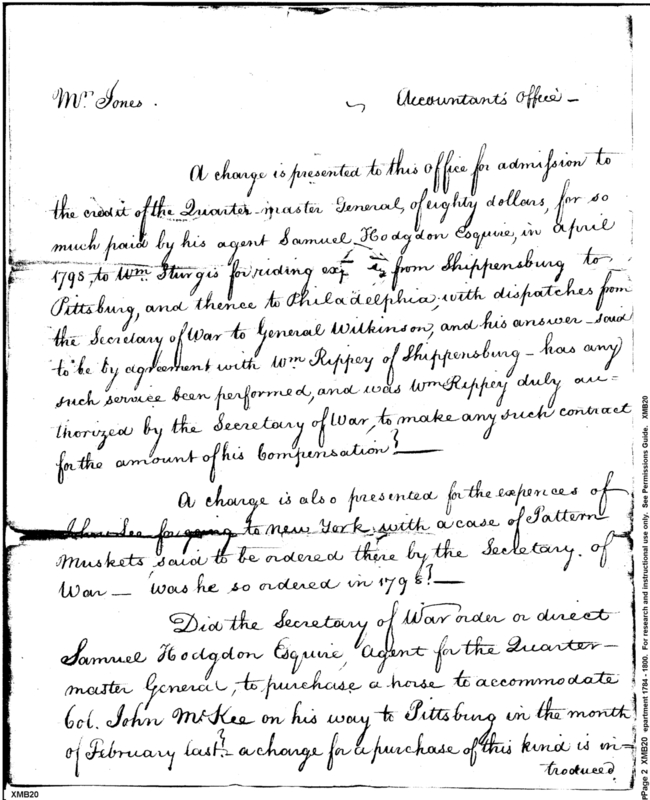 Mr. Jones.
Accountant's Office —
A charge is presented to this Office for admission to
the credit of the Quarter-master General, of eighty dollars, for so
much paid by his agent Samuel Hodgdon Esquire, in april
1798, to Wm. Sturgis for riding from Shippensburg to
Pittsburg, and thence to Philadelphia, with dispatches from
the Secretary of War to General Wilkinson, and his answer — said
to be by agreement with Wm Rippey of Shippensburg — has any
such service been performed, and was Wm Rippey duly au=
thorized by the Secretary of War, to make any such contract
for the amount of his Compensation? —
A charge is also presented for the expences of
John Lee for going to New York, with a case of Pattern
Muskets, said to be ordered there by the Secretary. of
War — was he so ordered in 1798? —
Did the Secretary of War order or direct
Samuel Hodgdon Esquire, Agent for the Quarter—
master General, to purchase a horse to accommodate
Col. John McKee on his way to Pittsburg in the month
of February last? — a charge for a purchase of this kind is in—
troduced
XMB20
Page 2 XMB20 epartment 1784 - 1800. For research and instructional use only. See Permissions Guide. XMB20